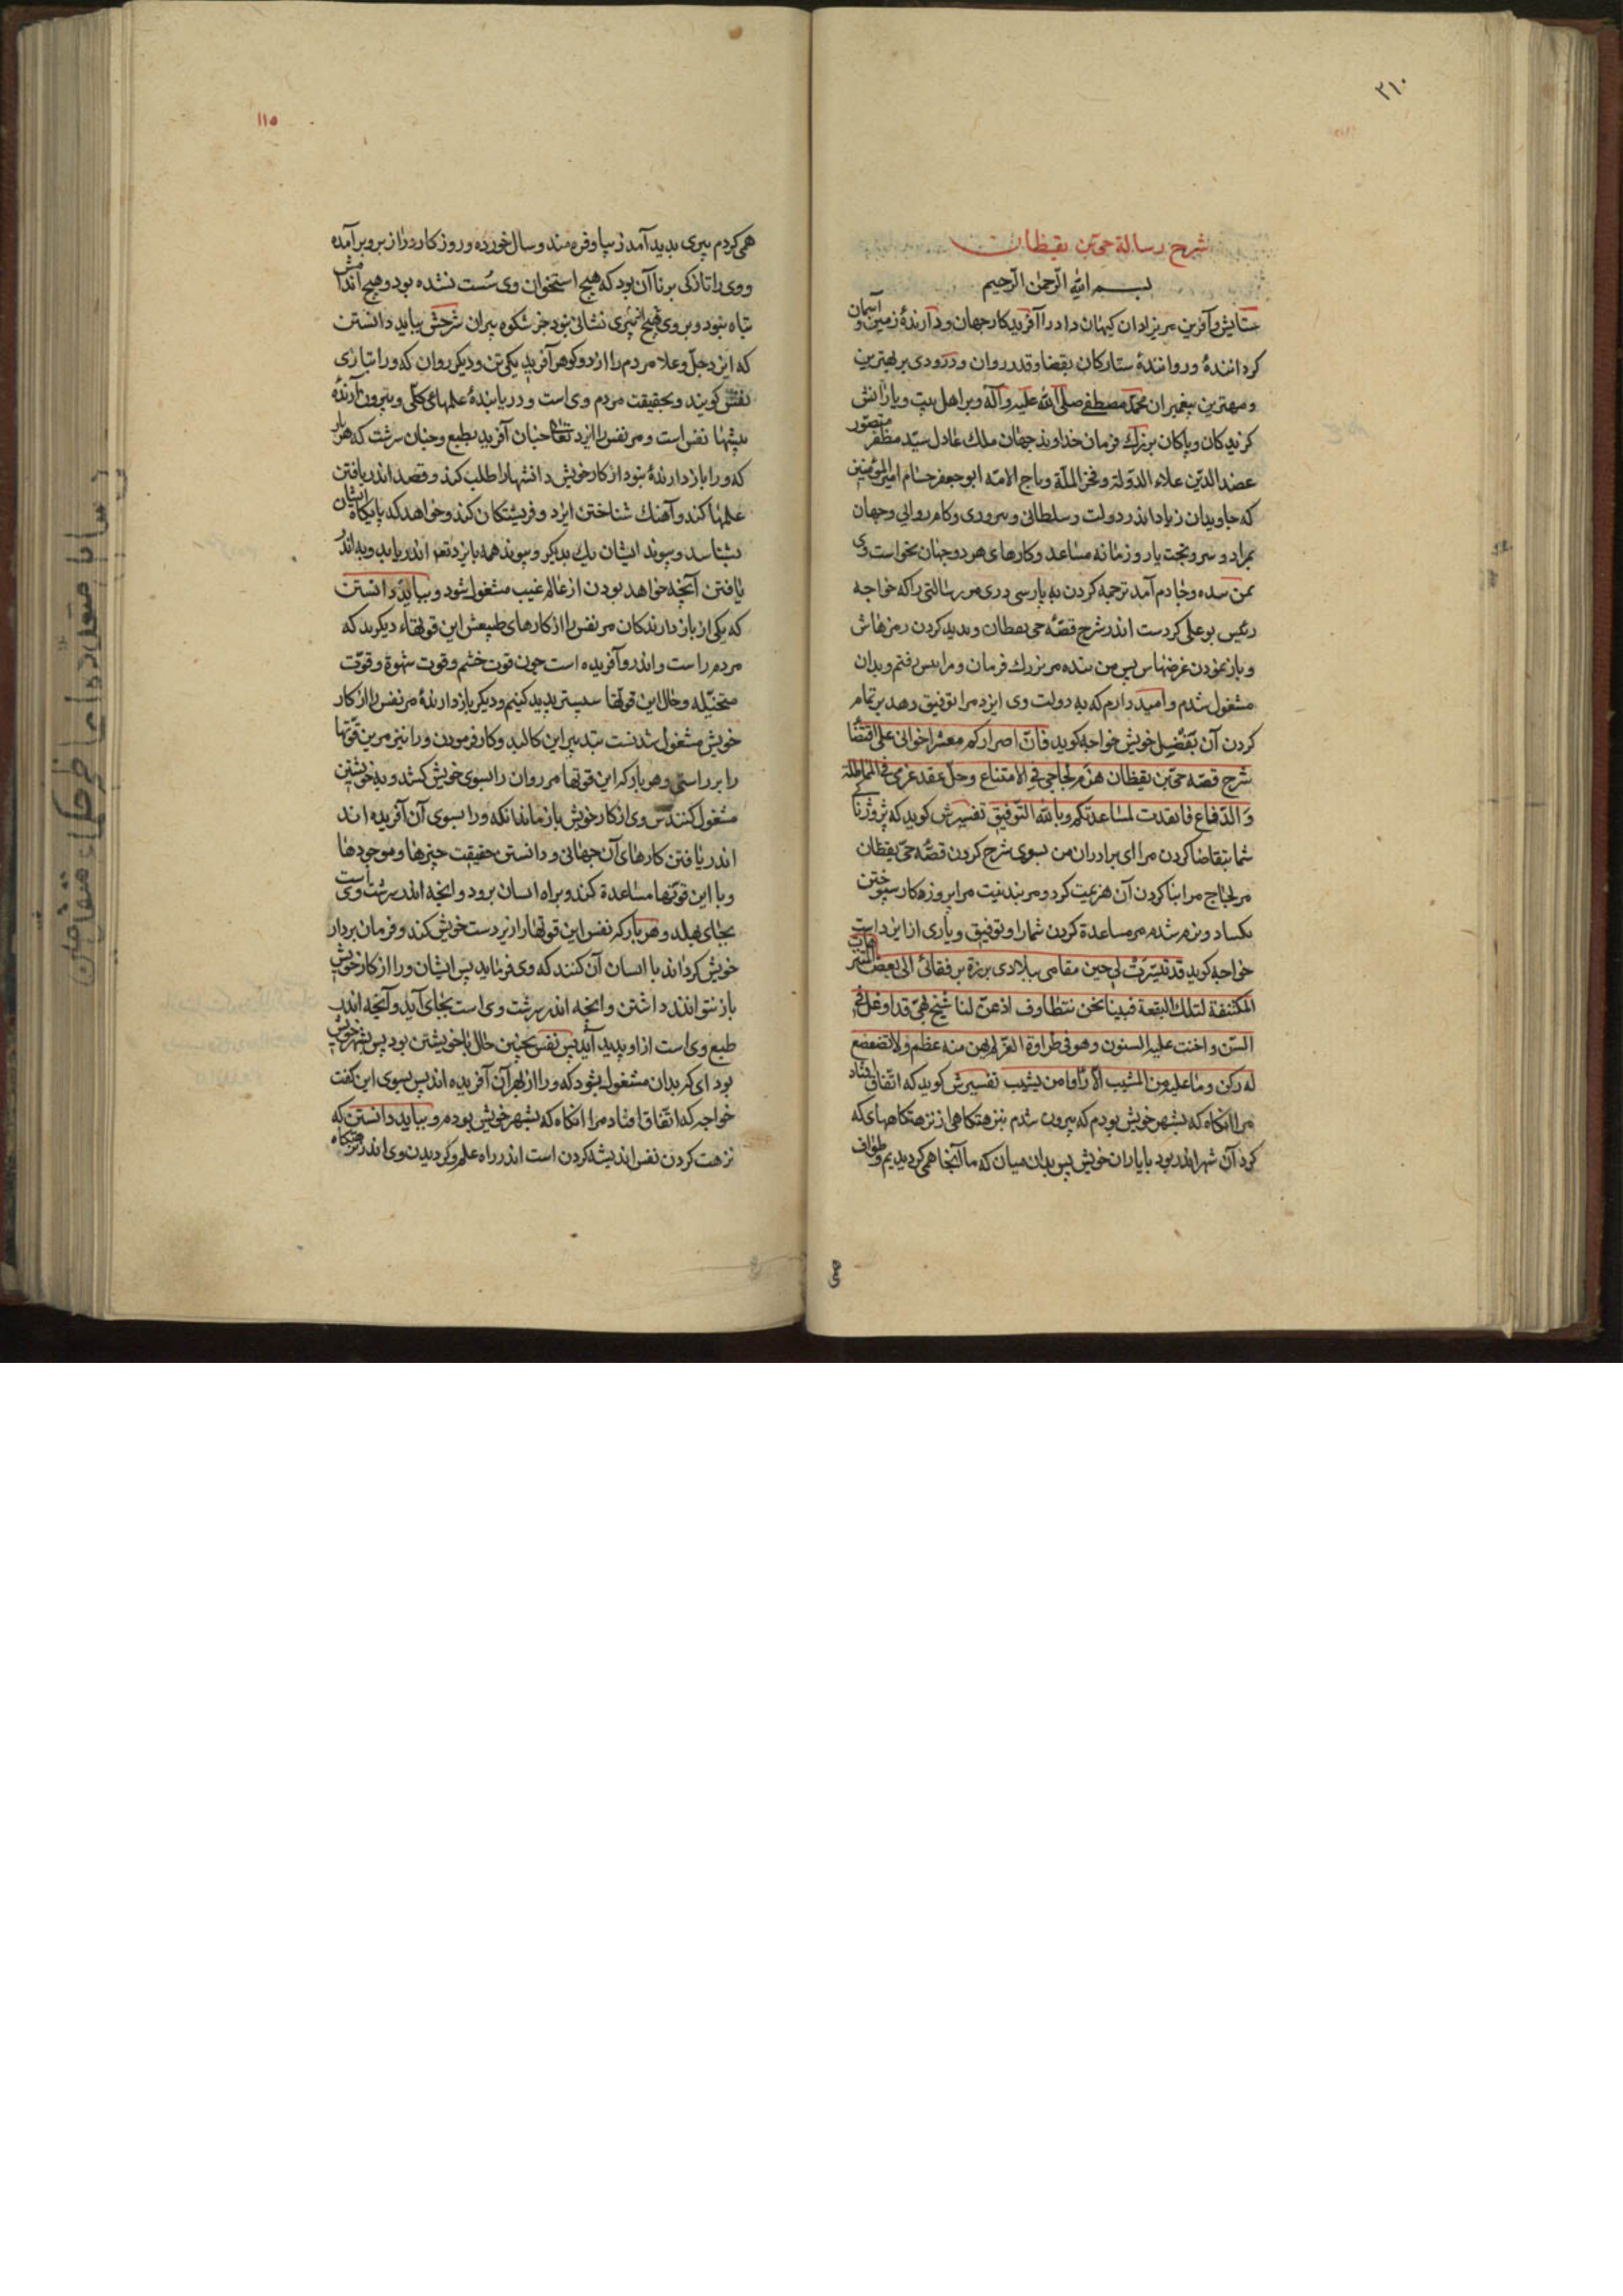 ۲۱۰
شرح رسالة حی بن یقظان
بسم الله الرحمن الرحیم
ستایش و آفرین مریزدان کیهان دادار آفریدکار جهان و دارندۀ زمین و آسمان
کرداننده و روانندۀ ستارکان بقضا و قدر روان و درودی بر بهترین
و مهترین پیغمبران محمد مصطفی صلی الله علیه و آله و بر اهل بیت و یارانش
کزیدکان و پاکان بزرك فرمان خداوند جهان ملك عادل سید مظفر منصور
عضد الدین علاء الدولة و فخر الملة و تاج الامة ابو جعفر حسام امیر المؤمنین
که جاویدان زیاد اندر دولت و سلطانی و سروری و کامروایی و جهان
بمراد و سر و بخت یار و زمانه مساعد و کارهای هر دو جهان بخواست وی
بمن بنده و خادم آمد ترجمه کردن به پارسی دری مر رسالتی را که خواجه
رئیس بو علی کردست اندر شرح قصۀ حی یقظان و پدید کردن رمزهاش
و باز نمودن غرضهاش پس من بنده مر بزرك فرمان و را پیش رفتم و بدان
مشغول شدم و امید دارم که به دولت وی ایزد مرا توفیق دهد بر تمام
کردن آن بفضل خویش خواجه کوید فان اصرارکم معشر اخوانی علی اقتضا
شرح قصه حی بن یقظان هزم لجاجی فی الامتناع و حل عقد عزمی فی المماطلة
و الدفاع فانقدت لمساعدتکم و بالله التوفیق تفسیرش کوید که
شما بتقاضا کردن مرا ای برادران من بسوی شرح کردن قصۀ حی یقظان
مر لجاج مرا بنا کردن آن هزیمت کرد و مر بند نیت مرا بروزه کار سپوختن
بکشاد و نرم شدم مر مساعدة کردن شما را و توفیق و یاری از ایزد است
خواجه کوید قد تیسرت لی حین مقامی ببلادی برزة برفقائی الی بعض المتنزهات
المکتنفة لتلك البقعة فبینا نحن نتطاوف اذ عن لنا شیخ بهی قد اوغل فی
السن و اخنت علیه السنون و هو فی طراوة العز لم یهن منه عظم و لا تضعضع
له رکن و ما علیه من المشیب الا رواء من یشیب تفسیرش کوید که اتفاق افتاد
مرا آنکاه که بشهر خویش بودم که بیرون شدم بنزهتکاهی از نزهتکاههای که
کرد آن شهر اندر بود با یاران خویش پس بدان میان که ما آنجا همی کردیدیم و طوافی
همی
۱۱۵
همی کردم پیری بدید آمد زیبا و فره مند و سال خورده و روزکار دراز برو برآمده
و وی را تازکی برنا آن بود که هیچ استخوان وی سست نشده بود و هیچ اندامش
تباه نبود و بر وی هیچ از پیری نشانی نبود جز شکوه پیران شرحش بباید دانستن
که ایزد جل و علا مردم را از دو کوهر آفرید یکی تن و دیکر روان که ورا بتازی
نفس کویند و بحقیقت مردم وی است و دریابندۀ علمهای کلی و بیرون آرندۀ
پیشها نفس است و مر نفس را ایزد تعالی چنان آفرید بطبع و چنان سرشت که هر بار
که ورا باز دارندۀ نبود از کار خویش دانشها را طلب کند و قصد اندر یافتن
علمها کند و آهنك شناختن ایزد و فریشتکان کند و خواهد که پایکاه ایشان
بشناسد و پیوند ایشان یك بدیکر و پیوند همه بایزد تعا اندر یابد و به اندر
یافتن آنچه خواهد بودن از عالم غیب مشغول شود و بباید دانستن
که یکی از باز دارندکان مر نفس را از کارهای طبیعتش این قوتهاء دیکرند که
مردم راست و اندرو آفریده است چون قوت خشم و قوت شهوة و قوت
متخیله و حال این قوتها سپستر پدید کنیم و دیکر باز دارندۀ مر نفس را از کار
خویش مشغول شدنست بتدبیر این کالبد و کار فرمودن ورا نیز مرین قوتها
را بر راستی و هر بار که این قوتها مر روان را بسوی خویش کشند و به خویشتن
مشغول کنند پس وی از کار خویش باز ماند آنکه ورا بسوی آن آفریده اند
اندر یافتن کارهای آن جهانی و دانستن حقیقت چیزها و موجودها
و با این قوتها مساعدة کند و براه ایشان برود و آنچه اندر سرشت وی است
بجای بهلد و هر بار که نفس این قوتها را زبر دست خویش کند و فرمان بردار
خویش کرداند با ایشان آن کنند که وی فرماید پس ایشان ورا از کار خویش
باز نتوانند داشتن و آنچه اندر سرشت وی است بجای آید و آنچه اندر
طبع وی است ازو پدید آید پس نفس بچنین حال با خویشتن بود پس بشهر خویش
بود ای که بدان مشغول بشود که ورا از بهر آن آفریده اند پس بسوی این کفت
خواجه که اتفاق افتاد مرا آنکاه که بشهر خویش بودم و بباید دانستن که
نزهت کردن نفس اندیشه کردن است اندر راه علم و کردیدن وی اندر نزهتکاه